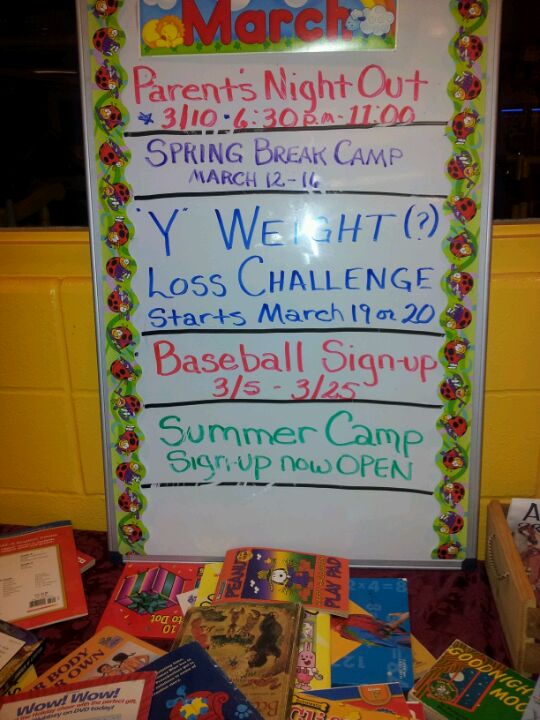 March
Parent's Night Out
* 3/10 • 6:30 p.m - 11:00
SPRING BREAK CAMP
MARCH 12-16
"Y" WEIGHT (?)
LOSS CHALLENGE
Starts March 19 or 20
Baseball Sign-up
3/5 - 3/25
Summer Camp
Sign-up now OPEN
PEANUTS
PLAY PAD
to Dot
BODY
OWN
Wow! Wow!
GOODNIGHT
MOO